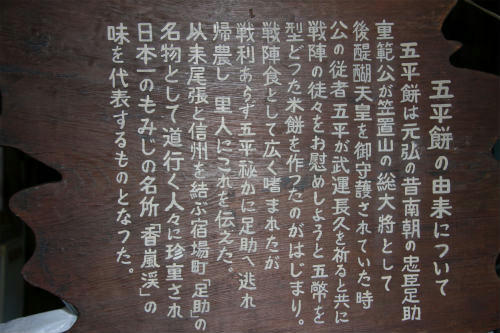 五平餅の由来について
五平餅は元弘の昔南朝の忠臣足助
重範公が笠置山の総大将として
後醍醐天皇を御守護されていた時
公の従者五平が武運長久を祈ると共に
戦陣の徒々をお慰めしようと五幣を
型どつた米餅を作つたのがはじまり。
戦陣食として広く嗜まれたが
戦利あらず五平秘かに足助へ逃れ
帰農し 里人にこれを伝えた。
以来尾張と信州を結ぶ宿場町「足助」の
名物として道行く人々に珍重され
日本一のもみじの名所「香嵐渓」の
味を代表するものとなつた。